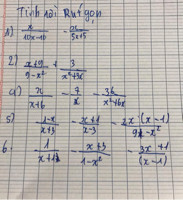 Tính rồi Rút gọn
1) x/(10x-10) - x/(5x+5)
2) (x+9)/(9-x²) + 3/(x²+3x)
4) x/(x+6) - 7/x - 36/(x²+6x)
5) (1-x)/(x+3) - (x+1)/(x-3) - 2x(x-1)/(9-x²)
6. 1/(x+1) - (x+3)/(1-x²) - (3x+1)/(x-1)